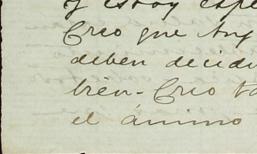 y estoy espe
Creo que Any
deben decidi
bien - Creo ta
el ánimo